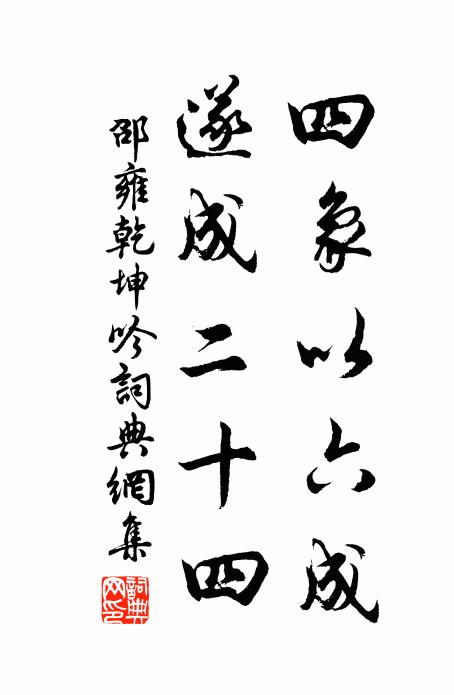 四象以六成
遂成二十四
邵雍乾坤吟詞典網集
詞典網印